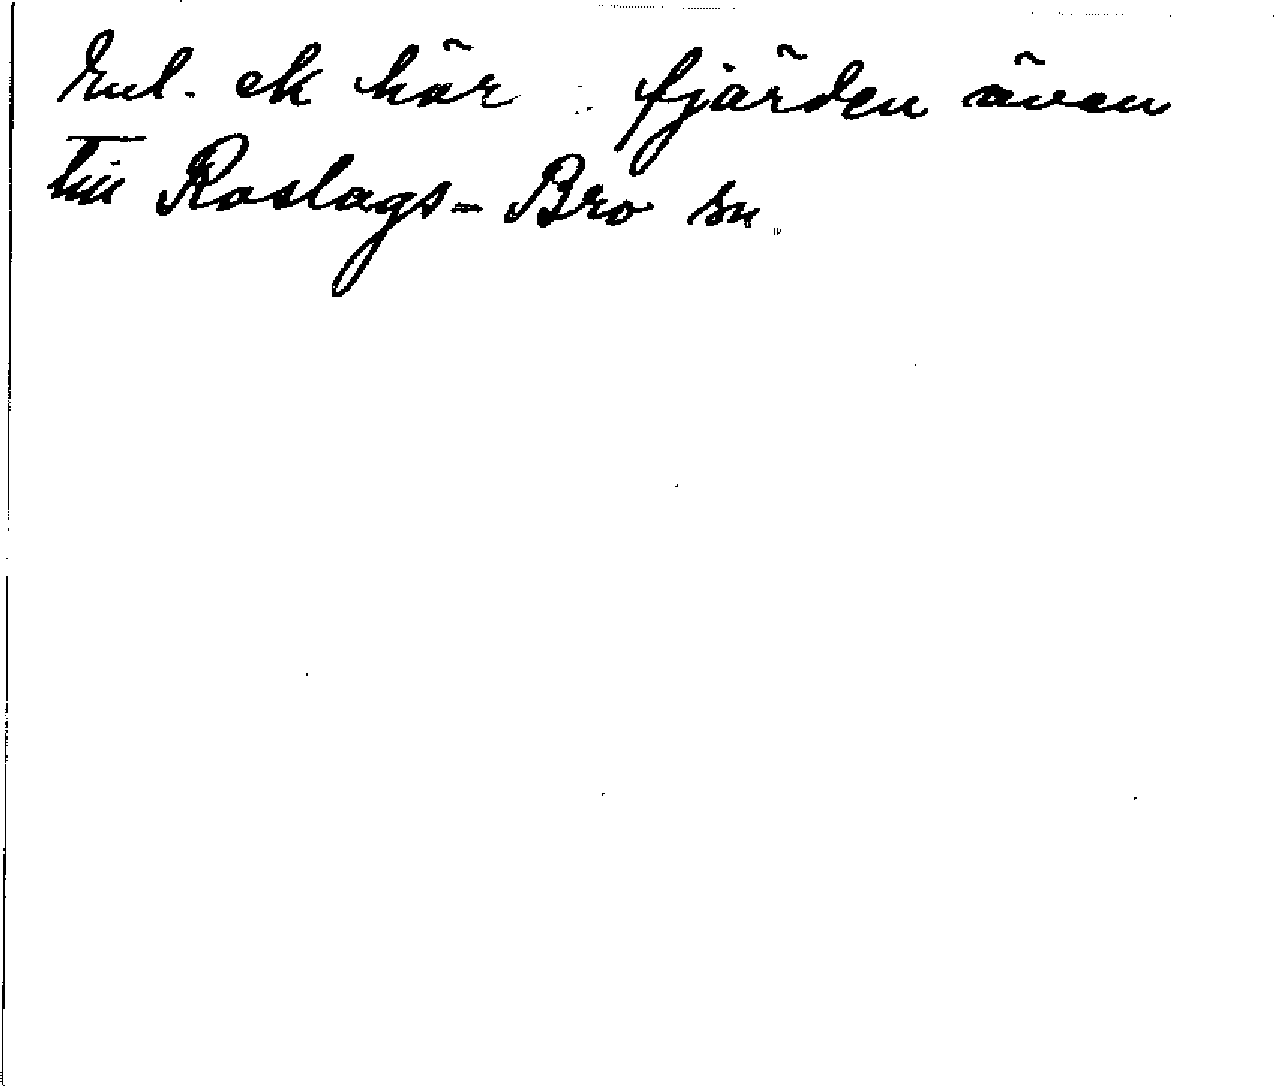 Enl. ek hör fjärden även
till Roslags-Bro sn